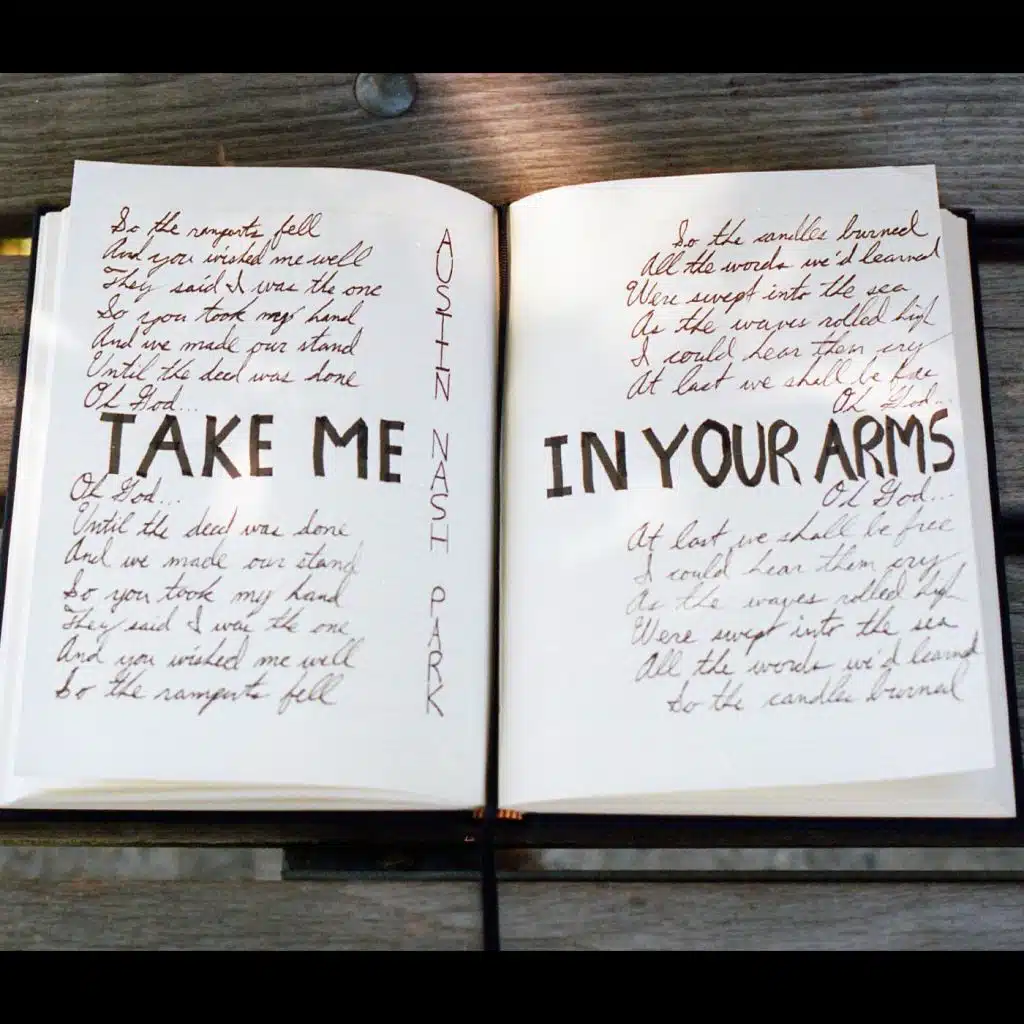 So the ramparts fell
And you wished me well
They said I was the one
So you took my hand
And we made our stand
Until the deed was done
Oh God...
TAKE ME
Oh God...
Until the deed was done
And we made our stand
So you took my hand
They said I was the one
And you wished me well
So the ramparts fell
AUSTIN NASH PARK
So the candles burned
All the words we'd learned
Were swept into the sea
As the waves rolled high
I could hear them cry
At last we shall be free
Oh God...
IN YOUR ARMS
Oh God...
At last we shall be free
I could hear them cry
As the waves rolled high
Were swept into the sea
All the words we'd learned
So the candles burned